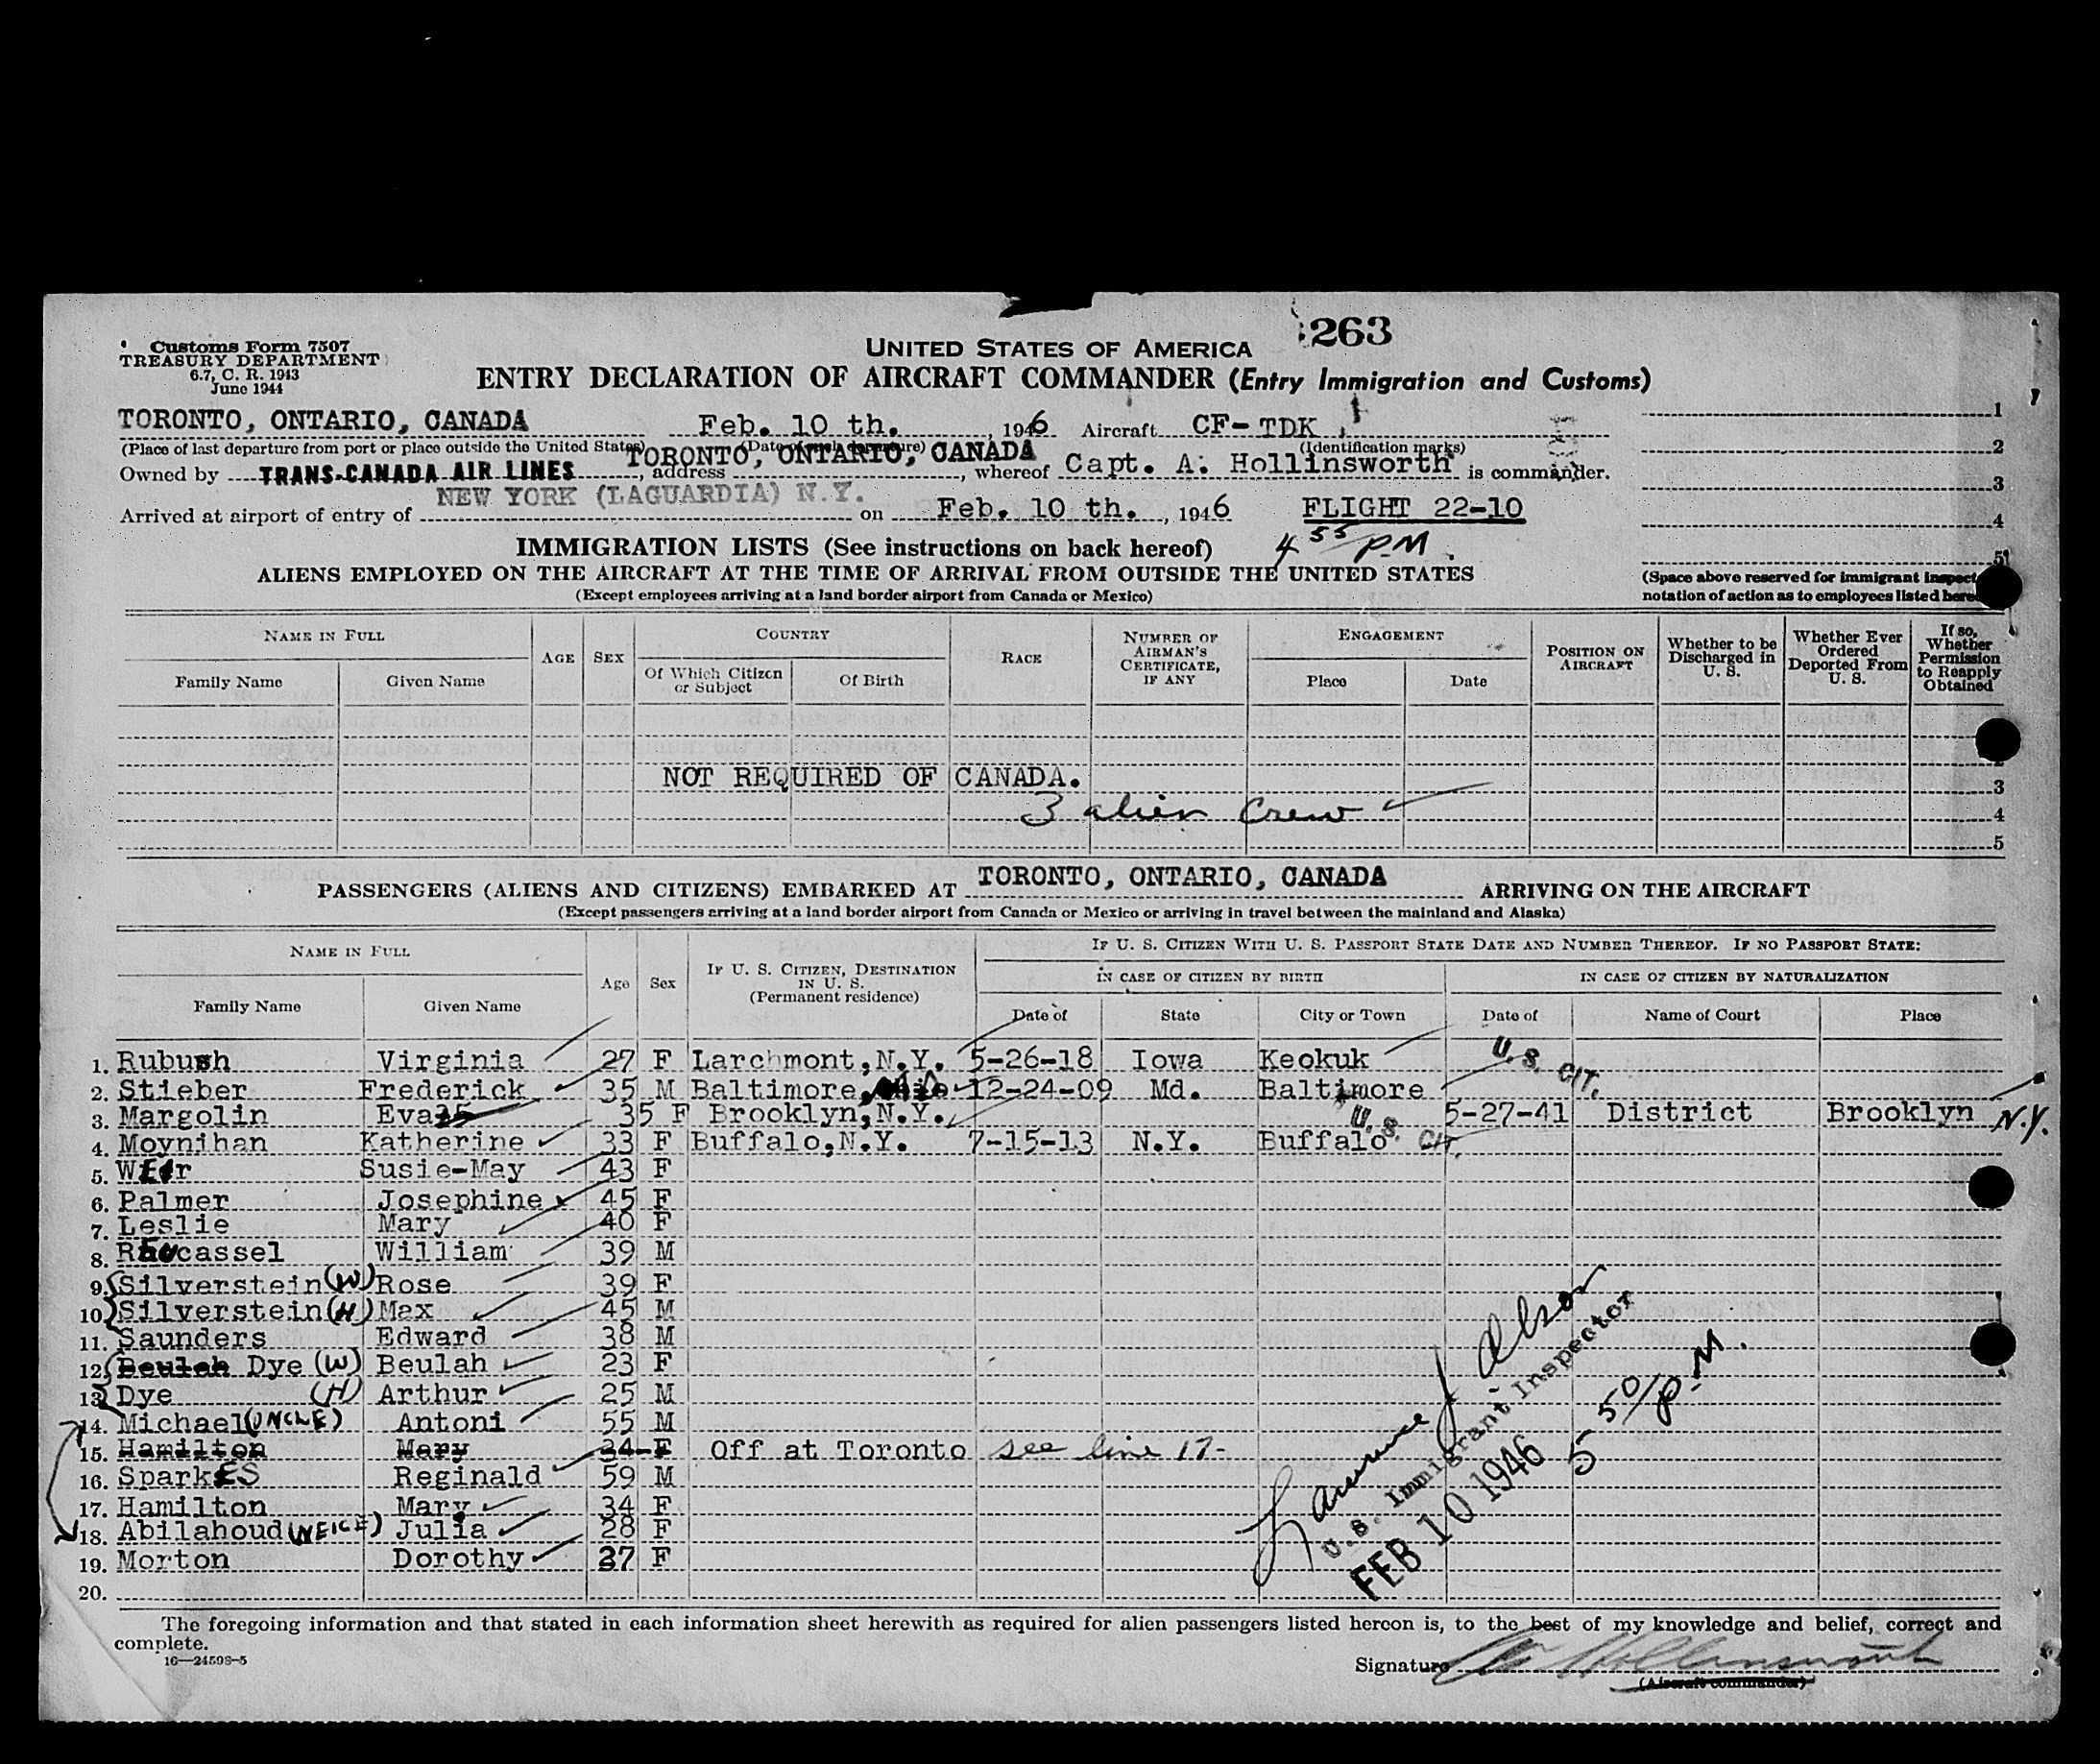 263
Customs Form 7507
TREASURY DEPARTMENT
6.7, C. R. 1943
June 1944
UNITED STATES OF AMERICA
ENTRY DECLARATION OF AIRCRAFT COMMANDER (Entry Immigration and Customs)
TORONTO, ONTARIO, CANADA Feb. 10 th. , 1946 Aircraft CF-TDK 1
(Place of last departure from port or place outside the United States) (Date of such departure) (Identification marks) 2
Owned by TRANS-CANADA AIR LINES , address TORONTO, ONTARIO, CANADA , whereof Capt. A. Hollinsworth is commander. 3
Arrived at airport of entry of NEW YORK (LAGUARDIA) N.Y. on Feb. 10 th. , 1946 FLIGHT 22-10 4
IMMIGRATION LISTS (See instructions on back hereof) 4 55 P.M. 5
ALIENS EMPLOYED ON THE AIRCRAFT AT THE TIME OF ARRIVAL FROM OUTSIDE THE UNITED STATES
(Except employees arriving at a land border airport from Canada or Mexico)
(Space above reserved for immigrant
notation of action as to employees listed
NAME IN FULL AGE SEX COUNTRY RACE NUMBER OF AIRMAN'S CERTIFICATE, IF ANY ENGAGEMENT POSITION ON AIRCRAFT Whether to be Discharged in U. S. Whether Ever Ordered Deported From U. S. If so, Whether Permission to Reapply Obtained
Family Name Given Name Of Which Citizen or Subject Of Birth Place Date
NOT REQUIRED OF CANADA. 3
3 alien crew 4
5
PASSENGERS (ALIENS AND CITIZENS) EMBARKED AT TORONTO, ONTARIO, CANADA ARRIVING ON THE AIRCRAFT
(Except passengers arriving at a land border airport from Canada or Mexico or arriving in travel between the mainland and Alaska)
NAME IN FULL Age Sex IF U. S. CITIZEN, DESTINATION IN U. S. (Permanent residence) IF U. S. CITIZEN WITH U. S. PASSPORT STATE DATE AND NUMBER THEREOF. IF NO PASSPORT STATE:
IN CASE OF CITIZEN BY BIRTH IN CASE OF CITIZEN BY NATURALIZATION
Family Name Given Name Date of State City or Town Date of Name of Court Place
1. Rubush Virginia 27 F Larchmont, N.Y. 5-26-18 Iowa Keokuk U. S. CIT.
2. Stieber Frederick 35 M Baltimore, 12-24-09 Md. Baltimore
3. Margolin Eva 35 F Brooklyn, N.Y. 5-27-41 District Brooklyn N.Y.
4. Moynihan Katherine 33 F Buffalo, N.Y. 7-15-13 N.Y. Buffalo U. S. CIT.
5. Susie-May 43 F
6. Palmer Josephine 45 F
7. Leslie Mary 40 F
8. William 39 M
9. Silverstein (W) Rose 39 F
10. Silverstein (H) Max 45 M
11. Saunders Edward 38 M
12. Beulah Dye (W) Beulah 23 F
13. Dye (H) Arthur 25 M
14. Michael (UNCLE) Antoni 55 M
15. Hamilton Mary 34 F Off at Toronto see line 17-
16. SparkES Reginald 59 M
17. Hamilton Mary 34 F
18. Abilahoud (NEICE) Julia 28 F
19. Morton Dorothy 37 F
20.
U. S. Immigrant Inspector
FEB 10 1946
5 50/P.M.
The foregoing information and that stated in each information sheet herewith as required for alien passengers listed hereon is, to the best of my knowledge and belief, correct and
complete.
16—24598-5
Signature A. Hollinsworth
(Aircraft commander)